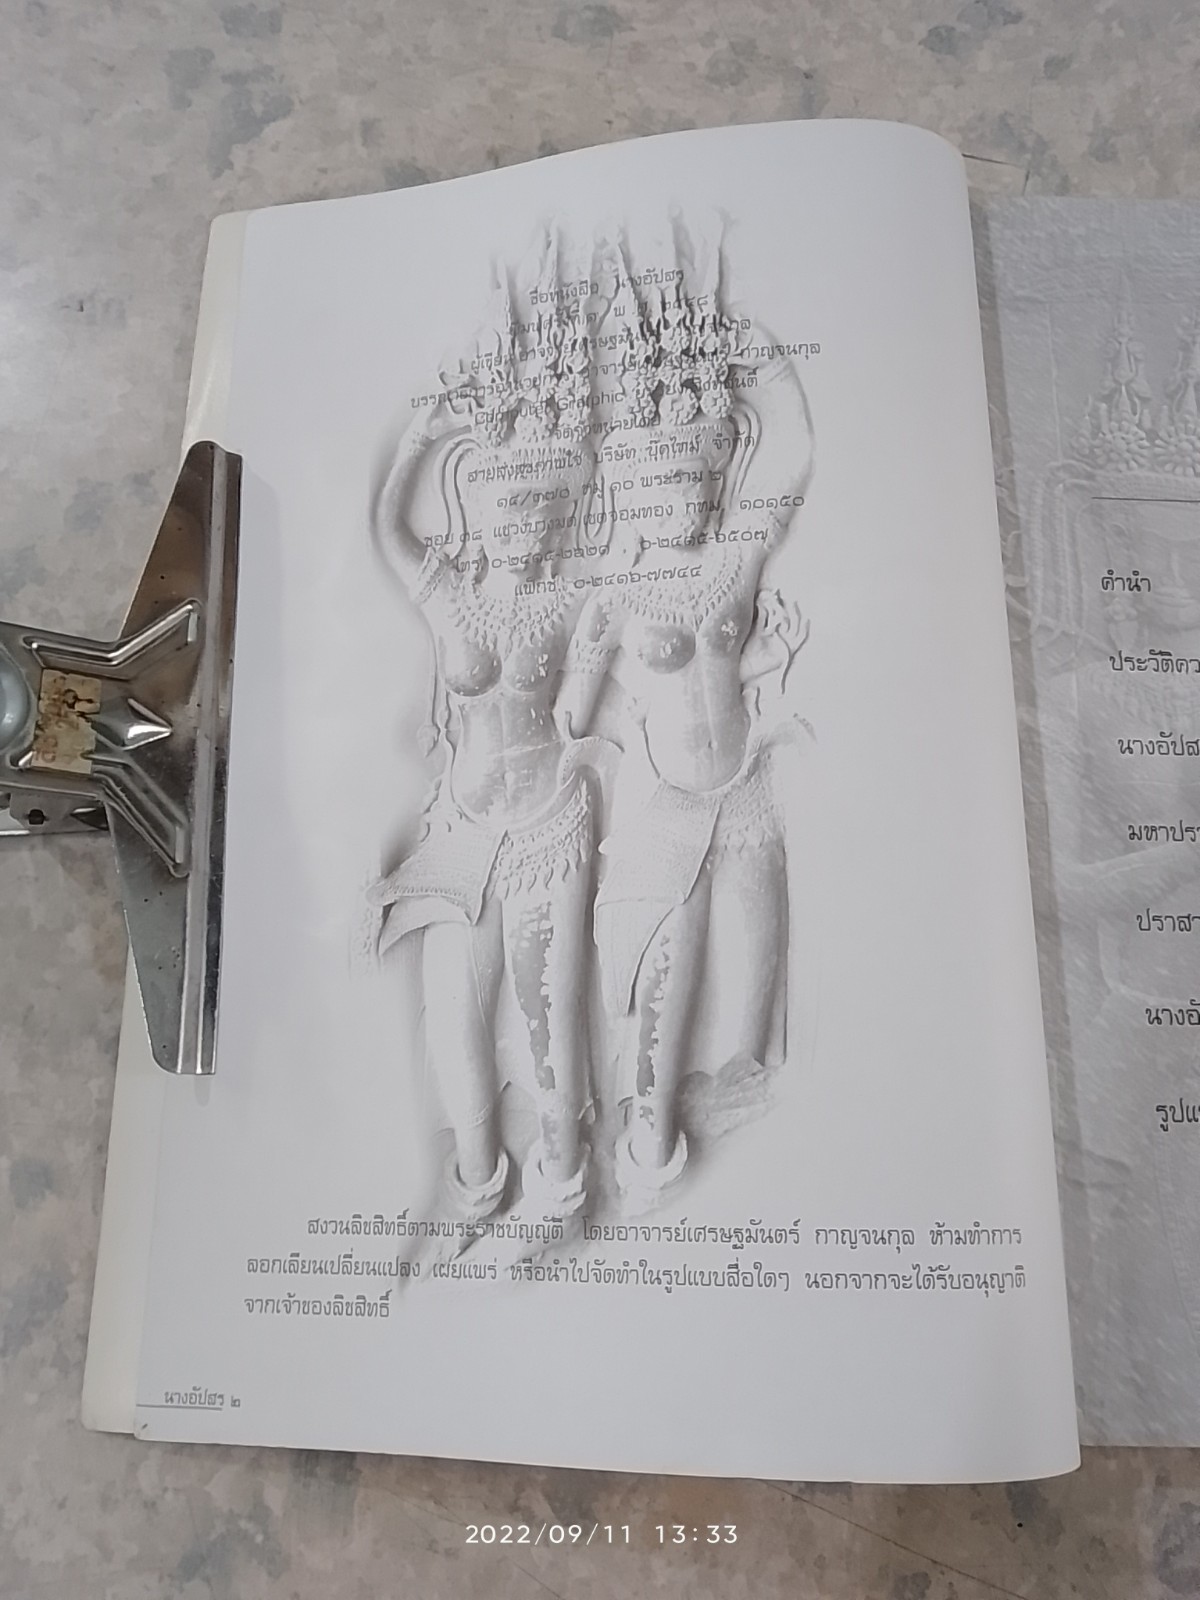 ชื่อหนังสือ นางอัปสร
พ.ศ. ๒๕๔๘
ผู้เขียน อาจารย์เศรษฐมันตร์ กาญจนกุล
บรรณาธิการอำนวยการ อาจารย์เศรษฐมันตร์ กาญจนกุล
Computer Graphic
จัดจำหน่ายโดย
สายส่งสุขภาพใจ บริษัท บุ๊คไทม์ จำกัด
๑๔/๓๗๐ หมู่ ๑๐ พระราม ๒
ซอย ๓๘ แขวงบางมด เขตจอมทอง กทม. ๑๐๑๕๐
โทร. ๐-๒๔๑๕-๒๖๒๑ , ๐-๒๔๑๕-๖๕๐๗
แฟ็กซ์. ๐-๒๔๑๖-๗๗๔๔
สงวนลิขสิทธิ์ตามพระราชบัญญัติ โดยอาจารย์เศรษฐมันตร์ กาญจนกุล ห้ามทำการ
ลอกเลียนเปลี่ยนแปลง เผยแพร่ หรือนำไปจัดทำในรูปแบบสื่อใดๆ นอกจากจะได้รับอนุญาติ
จากเจ้าของลิขสิทธิ์
นางอัปสร ๒
คำนำ
ประวัติคว
นางอัปส
มหาปรา
ปราสา
นางอั
รูปแ
2022/09/11 13:33